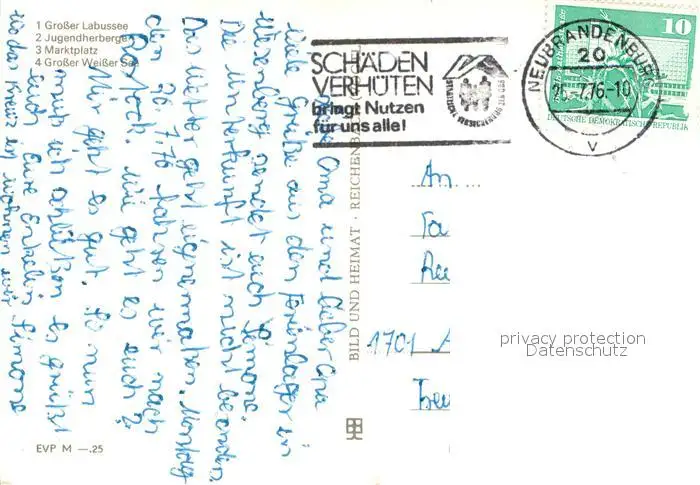 1 Großer Labussee
2 Jugendherberge
3 Marktplatz
4 Großer Weißer See
SCHÄDEN
VERHÜTEN
bringt Nutzen
für uns alle!
STAATLICHE VERSICHERUNG DER DDR
NEUBRANDENBURG
20
20.-7.76-10
V
10
DEUTSCHE DEMOKRATISCHE REPUBLIK
Liebe Oma und lieber Opa
Viele Grüße aus dem Ferienlager in
Wesenberg sendet euch Simone.
Die Unterkunft ist nicht besonders.
Das Wetter geht einigermaßen. Montag
den 26.7.76 fahren wir nach
Rostock. Wie geht es euch?
Mir geht es gut. So nun
muß ich schließen es grüßt
Euch Eure Enkelin Simone
wo das Kreuz ist wohnen wir
BILD UND HEIMAT · REICHENBACH
An
1701
EVP M —.25
privacy protection
Datenschutz